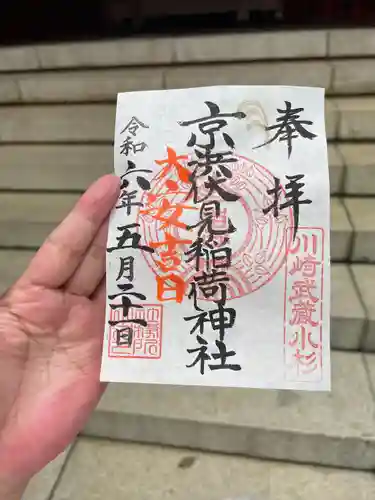 奉拝
川崎武蔵小杉
京浜伏見稲荷神社
大安吉日
令和六年五月二十一日